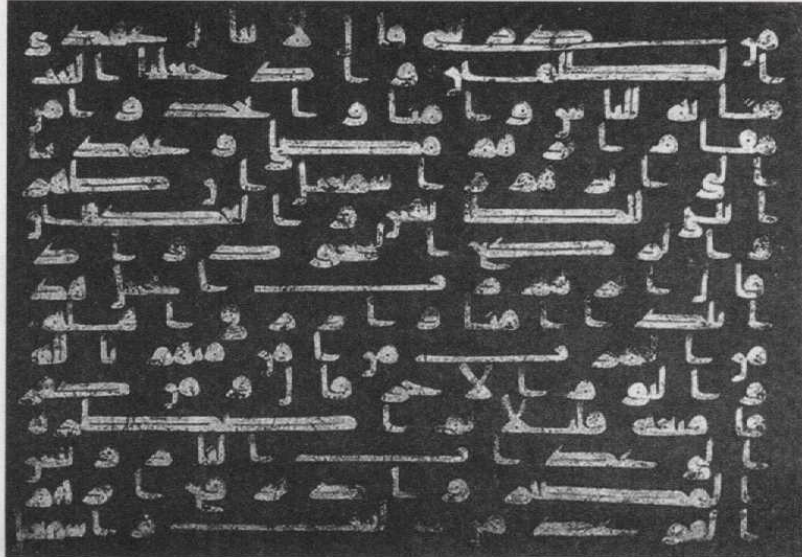 من ذريتي قال لا ينال عهدي
الظلمين واذ جعلنا البيت
مثابة للناس وامنا واتخذوا من
مقام ابرهيم مصلى وعهدنا
الى ابرهيم واسمعيل ان طهر
ا بيتي للطائفين والعكفين
والركع السجود واذ
قال ابرهيم رب اجعل هذ
ا بلدا امنا وارزق اهله
من الثمرت من امن منهم بالله
واليوم الاخر قال ومن كفر
فامتعه قليلا ثم اضطره
الى عذاب النار وبئس
المصير واذ يرفع ابرهيم
القواعد من البيت واسمعيل